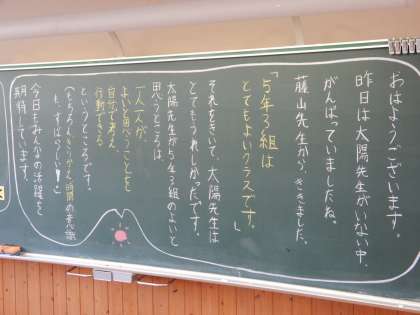 おはようございます。
昨日は太陽先生がいない中、
がんばっていましたね。
藤山先生から、ききました。
「５年３組は
とてもよいクラスです。」
それをきいて、太陽先生は
とてもうれしかったです。
太陽先生が５年３組のよいと
思うところは、
一人一人が、
よいと思うことを
自分で考え
行動できる
というところです。
も、すばらしい！
今日もみんなの活躍を
期待しています。